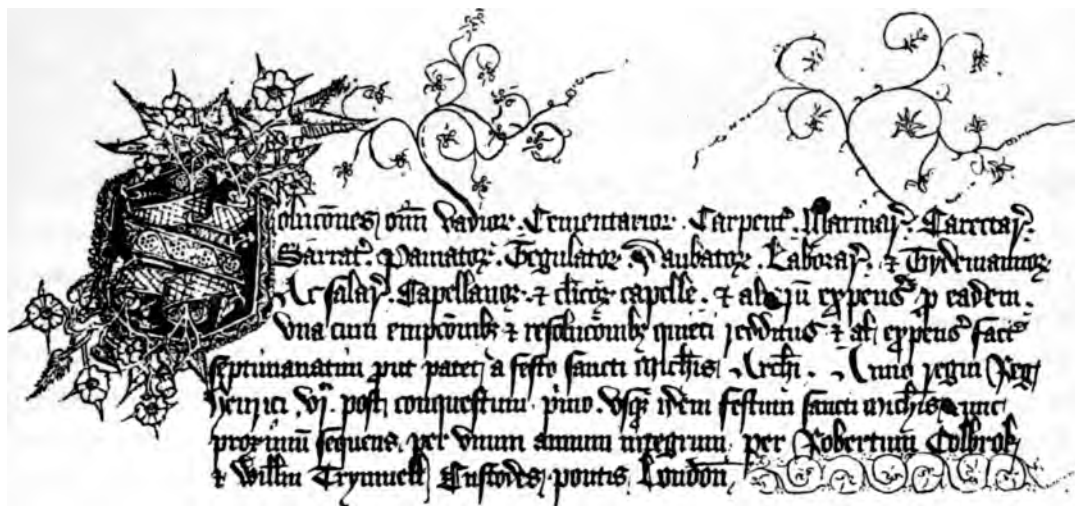 Soluc̄ones om̄i vadior. Cementarior. Carpent̉. Marinar̉. Carectar̉.
Sarrat̉. Pauiator. Tegulator. Daubator. Laborar̉. & Tydemannor
Ac salar̉. Capellanor. & cl̄icor capelle. & al expens̉ p eadem.
vna cum empc̄onibȝ & resoluc̄onibȝ quieti redditus & al expens̉ fact̉
septimanatim put patet a festo sancti Mich̄is Arch̄i. Anno regni Reg̉
Henrici vj. post conquestum p̉mo. vsqȝ idem festum sancti Mich̄is tunc
proximū sequens per vnum annum integrum per Robertum Colbrok
& Willm̄ Trymnell Custodes pontis London̄